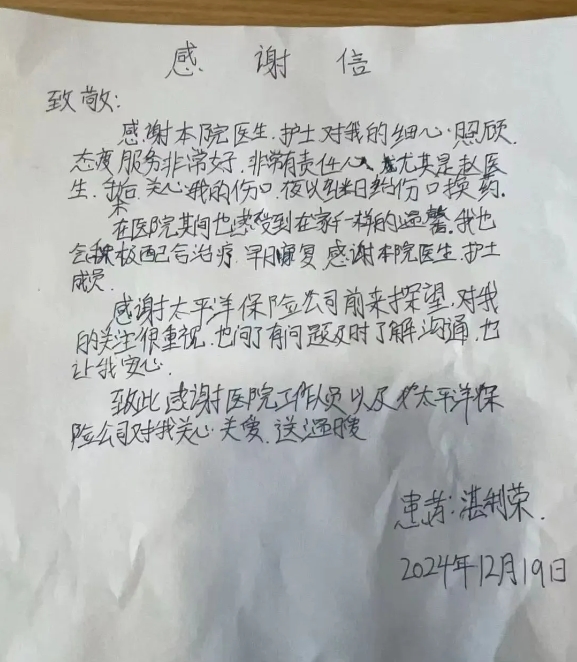 感谢信
致敬:
感谢本院医生.护士对我的细心.照顾.
态度服务非常好.非常有责任人.尤其是赵医
生.术后.关心我的伤口.每日给伤口换药.
在医院其间也感受到在家一样的温馨.我也
会积极配合治疗.早日康复.感谢本院医生.护士
成员.
感谢太平洋保险公司前来探望.对我
的关注很重视.也问了有问题及时了解沟通.也
让我安心.
致此感谢医院工作人员以及太平洋保
险公司对我关心.关爱.送温暖
患者:湛利荣.
2024年12月19日